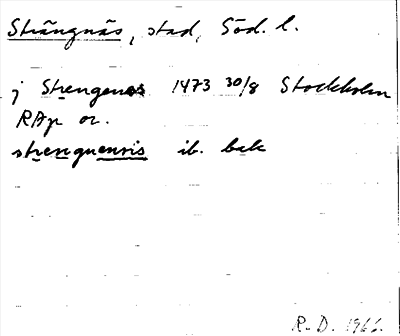 Strängnäs, stad, Söd. l.
j Strengenes 1473 30/8 Stockholm
RAp or.
strenguensis ib. bak
R-D. 1966.